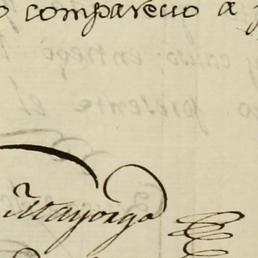 o comparecio a
Mayorga